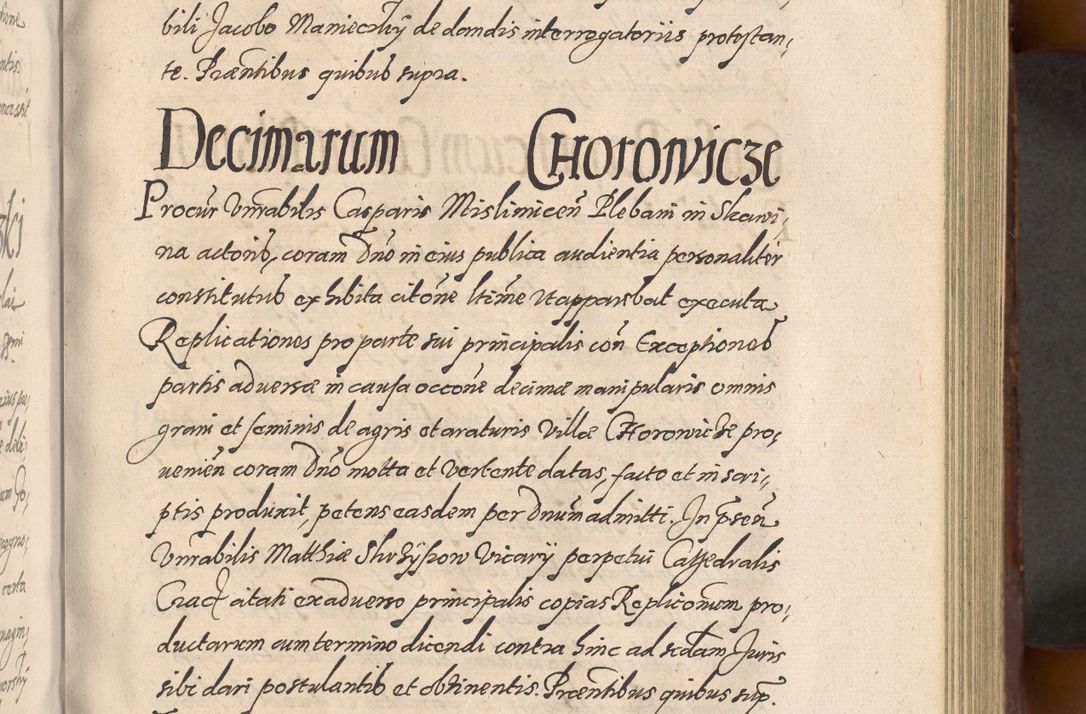 bili Jacobo Manieczky de dandis interrogatoriis protestan,
te. Præntibus quibus supra.
Decimarum Chorowicze
Procur Vnrabilis Casparis Mislimicen Plebani in Skawi,
na actoris, coram Dno in eius publica audientia personaliter
constitutus exhibita citone ltime ut apparebat executa
Replicationes pro parte sui principalis con Exceptiones
partis adversæ in causa occone decimæ manipularis omnis
grani et seminis de agris et araturis villæ Chorowicze pro,
uenien coram Dno motta et vertente datas, facto et in scri,
ptis produxit, petens easdem per Dnum admitti. In psen
Vnrabilis Matthiæ Skrzyszow Vicarij perpetui Cathedralis
Crac citati ex adverso principalis copias Repliconum pro,
ductarum cum termino dicendi contra hinc ad scdam Juris
sibi dari postulantis et obtinentis. Præntibus quibus sup.